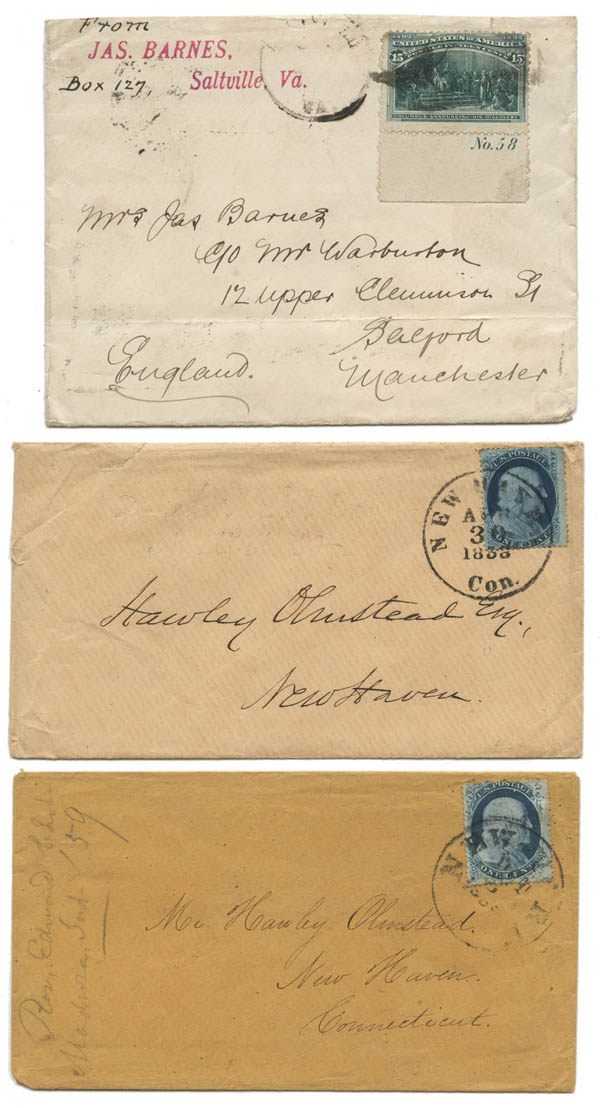 From
JAS. BARNES,
Box 127, Saltville, Va.
VA.
1492 1892
UNITED STATES OF AMERICA
15 15
COLUMBUS ANNOUNCING HIS DISCOVERY
No. 58
Mrs Jas Barnes
C/o Mr Warburton
12 Upper Clennison St
Salford
England. Manchester
U.S. POSTAGE
ONE CENT
NEW HAVEN
30
1858
Con.
Hawley Olmstead Esq.,
New Haven.
U.S. POSTAGE
ONE CENT
NEW
Rev. Edward
Ind. '59
Mr Hawley Olmstead.
New Haven.
Connecticut.